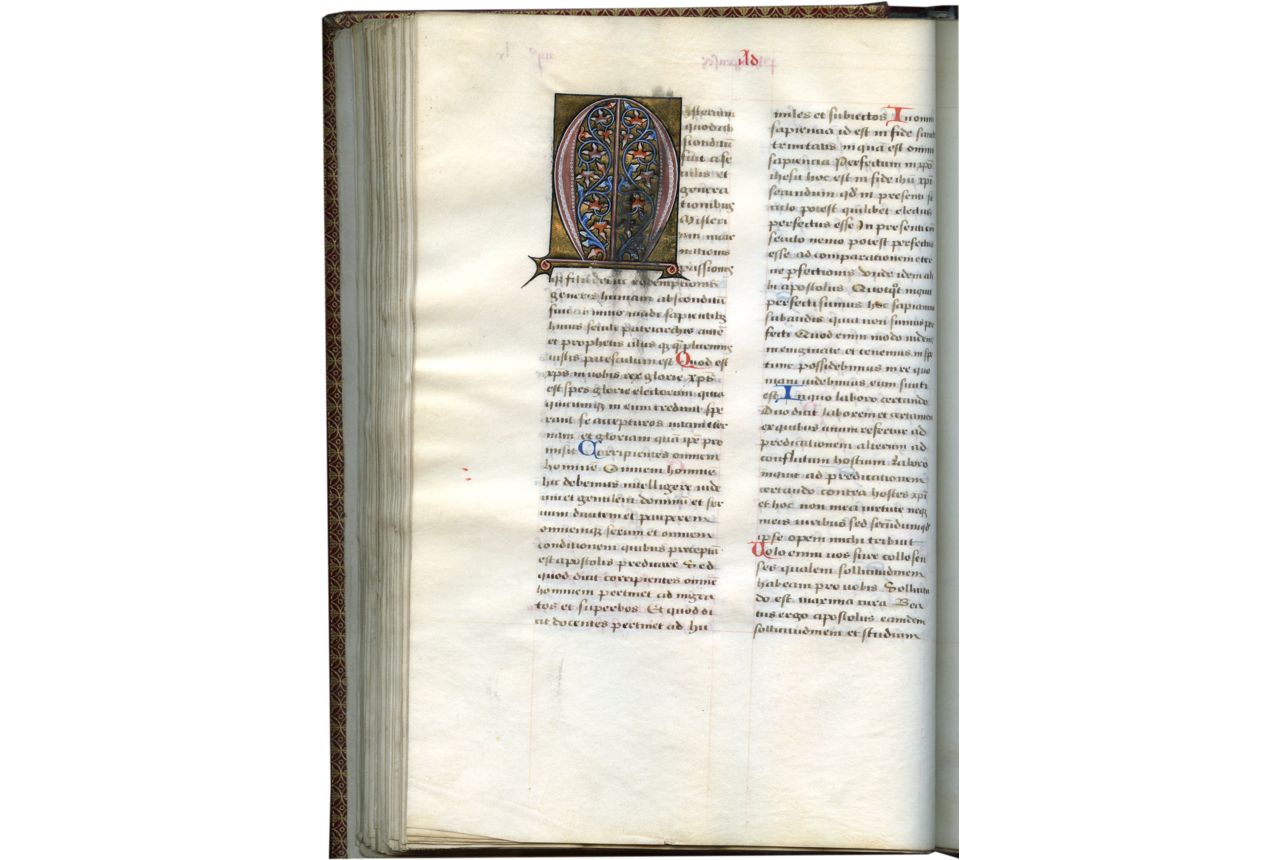 Ad
Misterium
quod ab
sconditū
fuit a se
culis et
genera
tionibus
Misteri
um incar
nationis
passionis
generis humani absconditū
huius seculi patriarchis autē
et prophetis
iustis patefactum est Quod est
xp̄s in vobis rex glorie xp̄s
est spes glorie electorum qua
in eum credunt spe
rant se accepturos vitam eter
nam et gloriam quā ip̄e pro
misit Corripientes omnem
hominē Omnem hominē
hic debemus intelligere iude
um et gentilem dominū et ser
uum diuitem et pauperem
omnemq̨ sexum et omnem
conditionem quibus preceptū
est apostolis predicare Sed
quod dicit corripientes omnē
hominem pertinet ad ingra
tos et superbos Et quod di
cit docentes pertinet ad hu
miles et subiectos In omni
sapiencia id est in fide sancte
trinitatis in qua est omnis
sapiencia Perfectum in xp̄o
ihesu hoc est in fide ihū xp̄i
secundum qd̄ in presenti se
culo potest quilibet electus
perfectus esse In presenti enim
seculo nemo potest perfectus
esse ad comparationem eter
ne perfectionis Unde idem ait
apostolus Quotquot
perfecti sumus hoc sapiamus
qua non sumus per
fecti Quod enim modo videmus
in enigmate et tenemus in spe
tunc possidebimus in re quo
niam videbimus eum sicuti
est In quo laboro certando
Duo dicit laborem et certamen
ex quibus unum refertur ad
predicationem alterum ad
conflictum hostium Laboro
inquit ad predicationem
certando contra hostes xp̄i
et hoc non mea virtute neq̨
meis viribus sed secūdum qd̄
ip̄se opem michi tribuit
Volo enim vos scire collosen
ses qualem sollicitudinem
habeam pro vobis Sollicitu
do est maxima cura Bea
tus ergo apostolus eamdem
sollicitudinem et studium